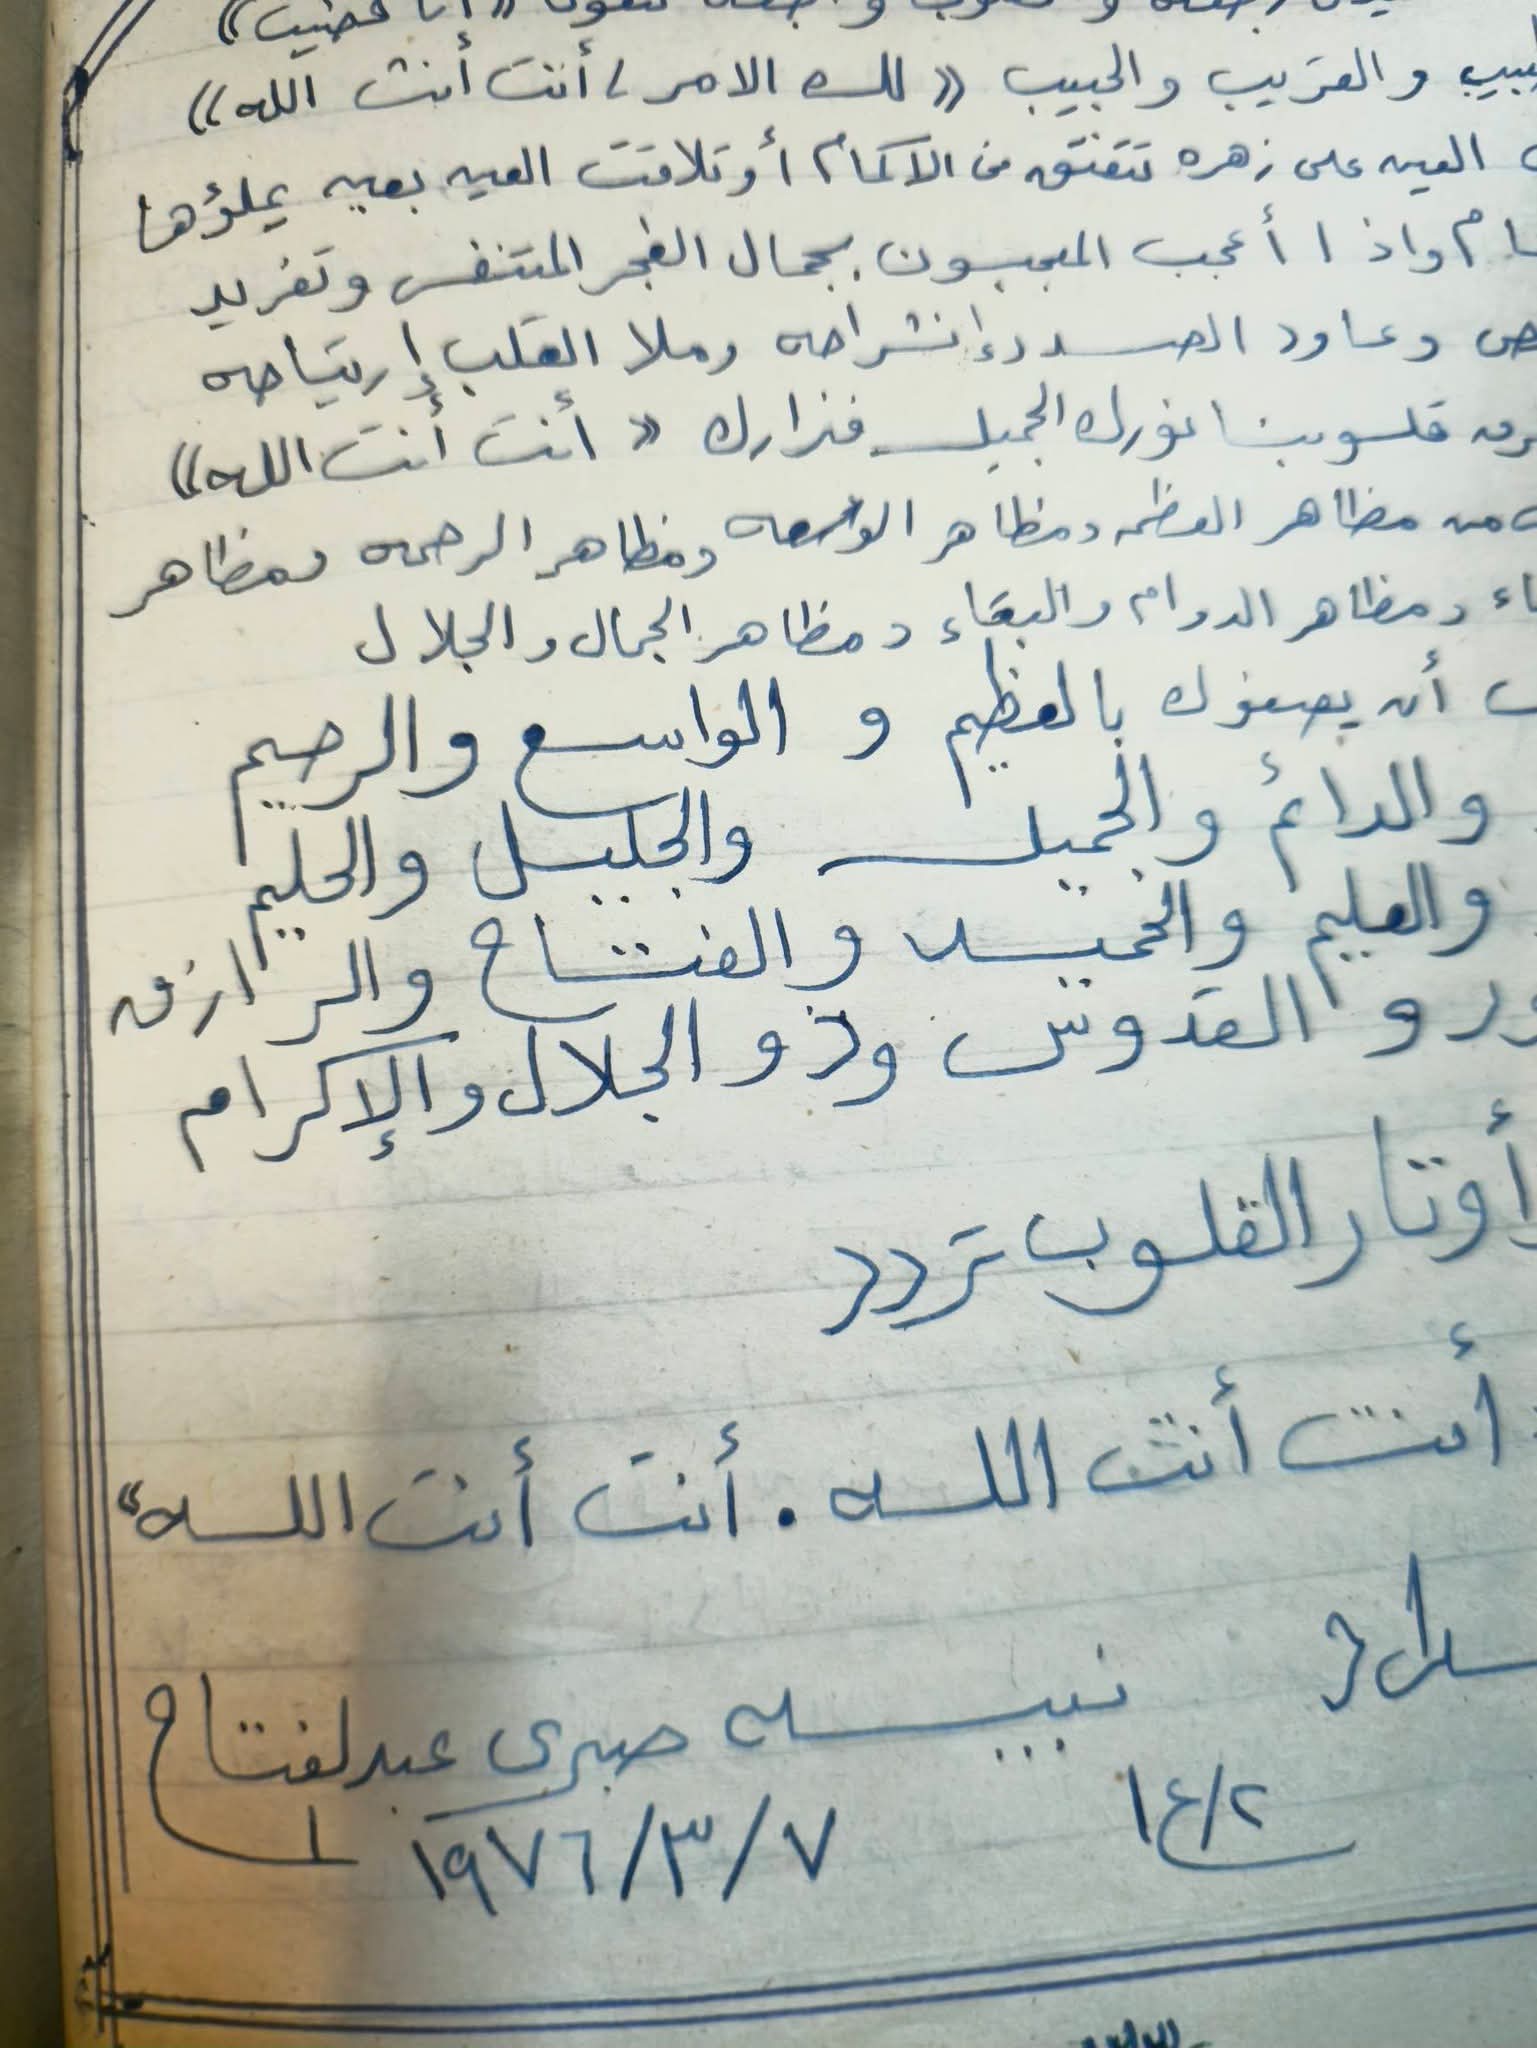 والقريب والحبيب « لك الامر / أنت أنت الله »
العين على زهره تتفتق من الاكمام أو تلاقت العين بعين يملؤها
واذا أعجب المعجبون بجمال الفجر المتنفس وتغريد
وعاود الصدر انشراحه وملا القلب إرتياحه
قلوبنا نورك الجميل فنراك « أنت أنت الله »
من مظاهر العظمه ومظاهر الواسعه ومظاهر الرحمه ومظاهر
ومظاهر الدوام والبقاء ومظاهر الجمال والجلال
أن يصفوك بالعظيم و الواسع والرحيم
والدائم والجميل والجليل والحليم
والعليم والحميد والفتاح والرازق
و القدوس وذو الجلال والإكرام
أوتار القلوب تردد
أنت أنت الله . أنت أنت الله "
نبيله صبرى عبدلفتاح
١٤/٢
١٩٧٦/٣/٧